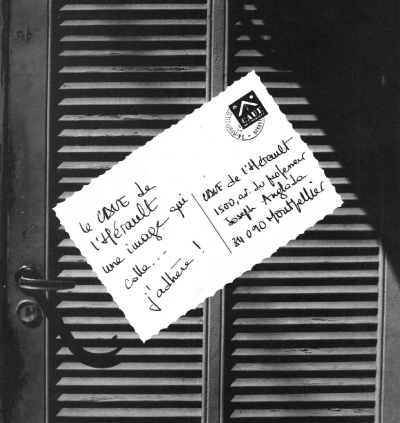 le CAUE de
l'Hérault
une image qui
colle...
j'adhère !
CAUE
CAUE de l'Hérault
1500, av. du professeur
Joseph Anglada
34 090 Montpellier